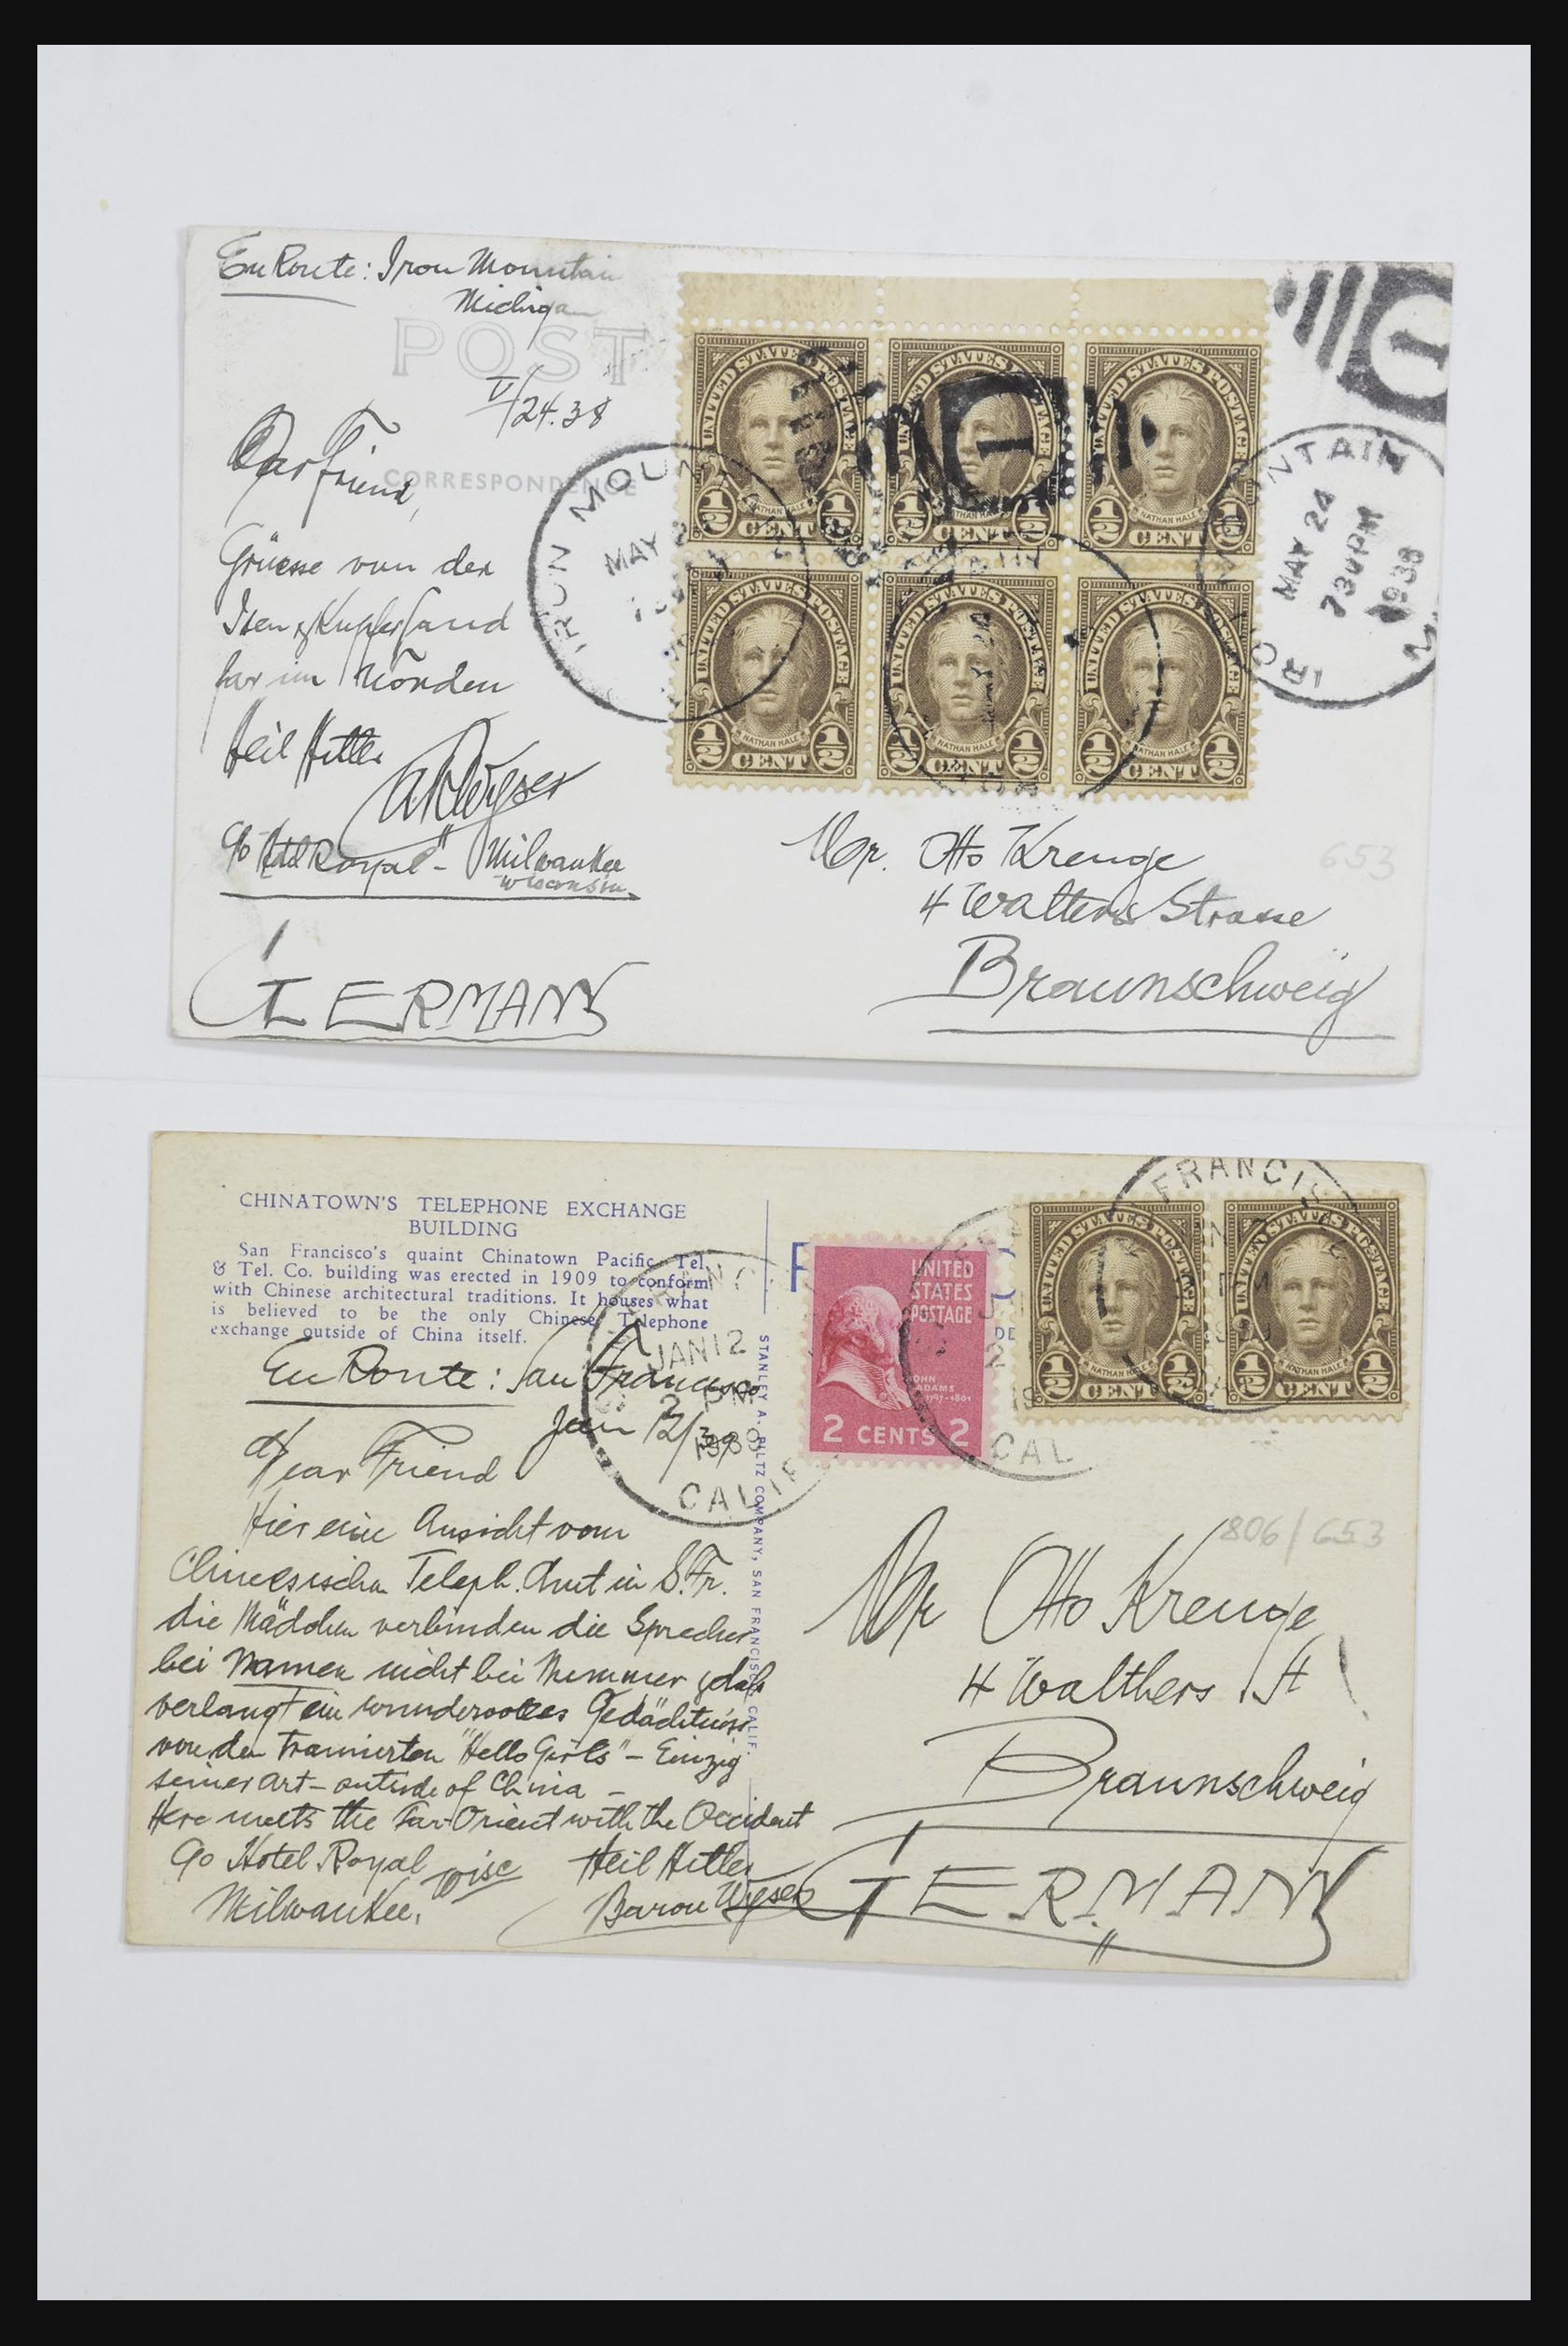 En Route: Iron Mountain
Michigan
POST
V/24.38
Dear Friend,
CORRESPONDENCE
Grüesse von der
Isen & Kupferland
far im Norden
Heil Hitler
c/o Hotel Royal - Milwaukee
Wisconsin
GERMANY
UNITED STATES POSTAGE
NATHAN HALE
1/2 CENT 1/2
UNITED STATES POSTAGE
NATHAN HALE
1/2 CENT 1/2
UNITED STATES POSTAGE
NATHAN HALE
1/2 CENT 1/2
UNITED STATES POSTAGE
NATHAN HALE
1/2 CENT 1/2
UNITED STATES POSTAGE
NATHAN HALE
1/2 CENT 1/2
UNITED STATES POSTAGE
NATHAN HALE
1/2 CENT 1/2
IRON MOUN
MAY 2
1
IRO NTAIN
MAY 24
730 PM
1938
M
Mr. Otto Krenge
653
4 Walthers Strasse
Braunschweig
CHINATOWN'S TELEPHONE EXCHANGE
BUILDING
San Francisco's quaint Chinatown Pacific Tel.
& Tel. Co. building was erected in 1909 to conform
with Chinese architectural traditions. It houses what
is believed to be the only Chinese Telephone
exchange outside of China itself.
En Route: San Francisco
Jan 12/39
Dear Friend
Hier eine Ansicht vom
Chinesischen Teleph. Amt in S.Fr.
die Mädchen verbinden die Sprecher
bei Namen nicht bei Nummer & das
verlangt ein wundervolles Gedächtniss
von den trainierten "Hello Girls" - Einzig
seiner Art - outside of China -
Here meets the Far-Orient with the Occident
c/o Hotel Royal
Milwaukee, Wisc
Heil Hitler
Baron Wyser
JAN 12
2 PM
1939
CALIF
STANLEY A. PILTZ COMPANY, SAN FRANCISCO, CALIF.
UNITED
STATES
POSTAGE
JOHN
ADAMS
1797-1801
2 CENTS 2
FRANCIS
CAL
UNITED STATES POSTAGE
NATHAN HALE
1/2 CENT 1/2
UNITED STATES POSTAGE
NATHAN HALE
1/2 CENT 1/2
806/653
Mr Otto Krenge
4 Walthers St
Braunschweig
GERMANY